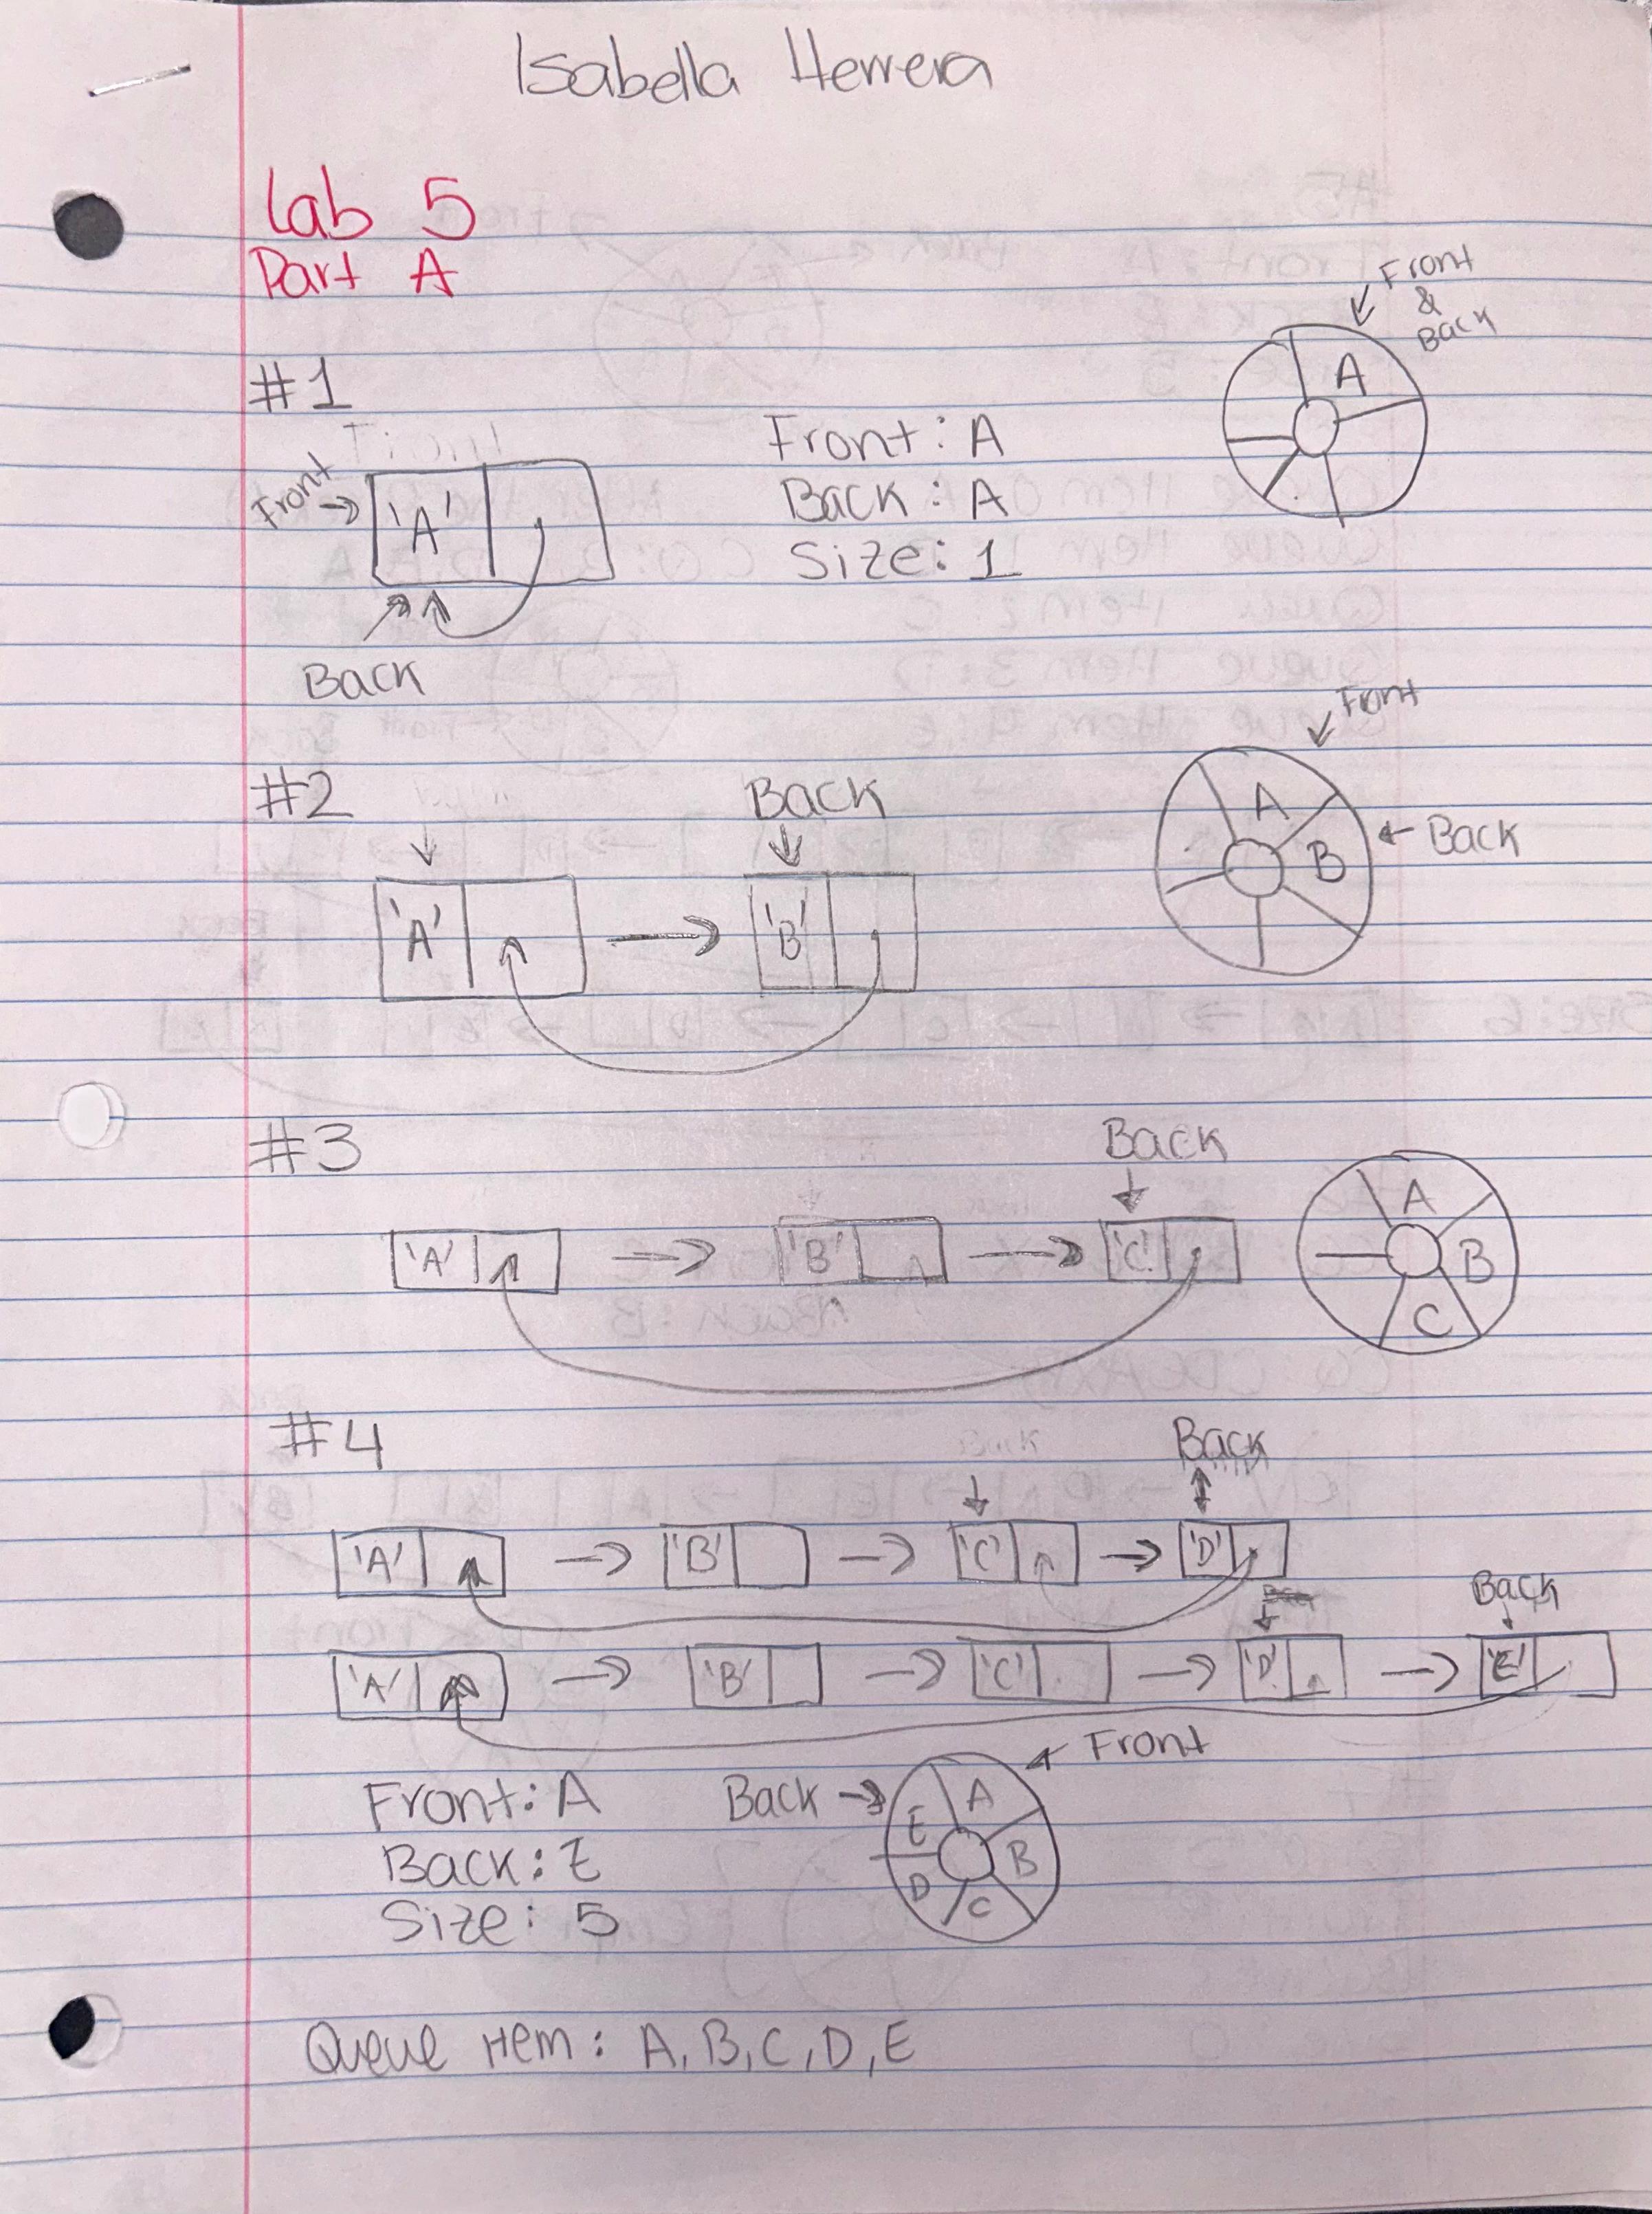 Isabella Herrera
Lab 5
Part A
Front
&
Back
A
#1
Front
'A'
Back
Front: A
Back: A
Size: 1
#2
Back
'A'
'B'
Front
A
B
Back
#3
Back
'A'
'B'
'C'
A
B
C
#4
Back
'A'
'B'
'C'
'D'
Back
'A'
'B'
'C'
'D'
'E'
Front: A
Back: E
Size: 5
Back
Front
A
E
B
D
C
Queue Item: A, B, C, D, E